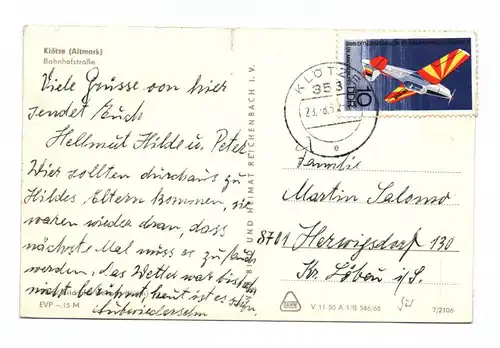 Klötze (Altmark)
Bahnhofstraße
Viele Grüsse von hier
sendet Euch
Hellmut Hilde u. Peter
Wir sollten durchaus zu
Hildes Eltern kommen, sie
waren wieder dran, das
nächste Mal muss es zu Euch
werden. Das Wetter war bisch
nicht berühmt, heut ist es schön
Aufwiedersehn
EVP –.15 M
BILD UND HEIMAT REICHENBACH I. V.
KLÖTZE
353
e
DDR
10
Familie
Martin Salomo
8701 Herwigsdorf 130
Kr. Löbau i/S.
V 11 50 A 1/B 546/68
7/2106